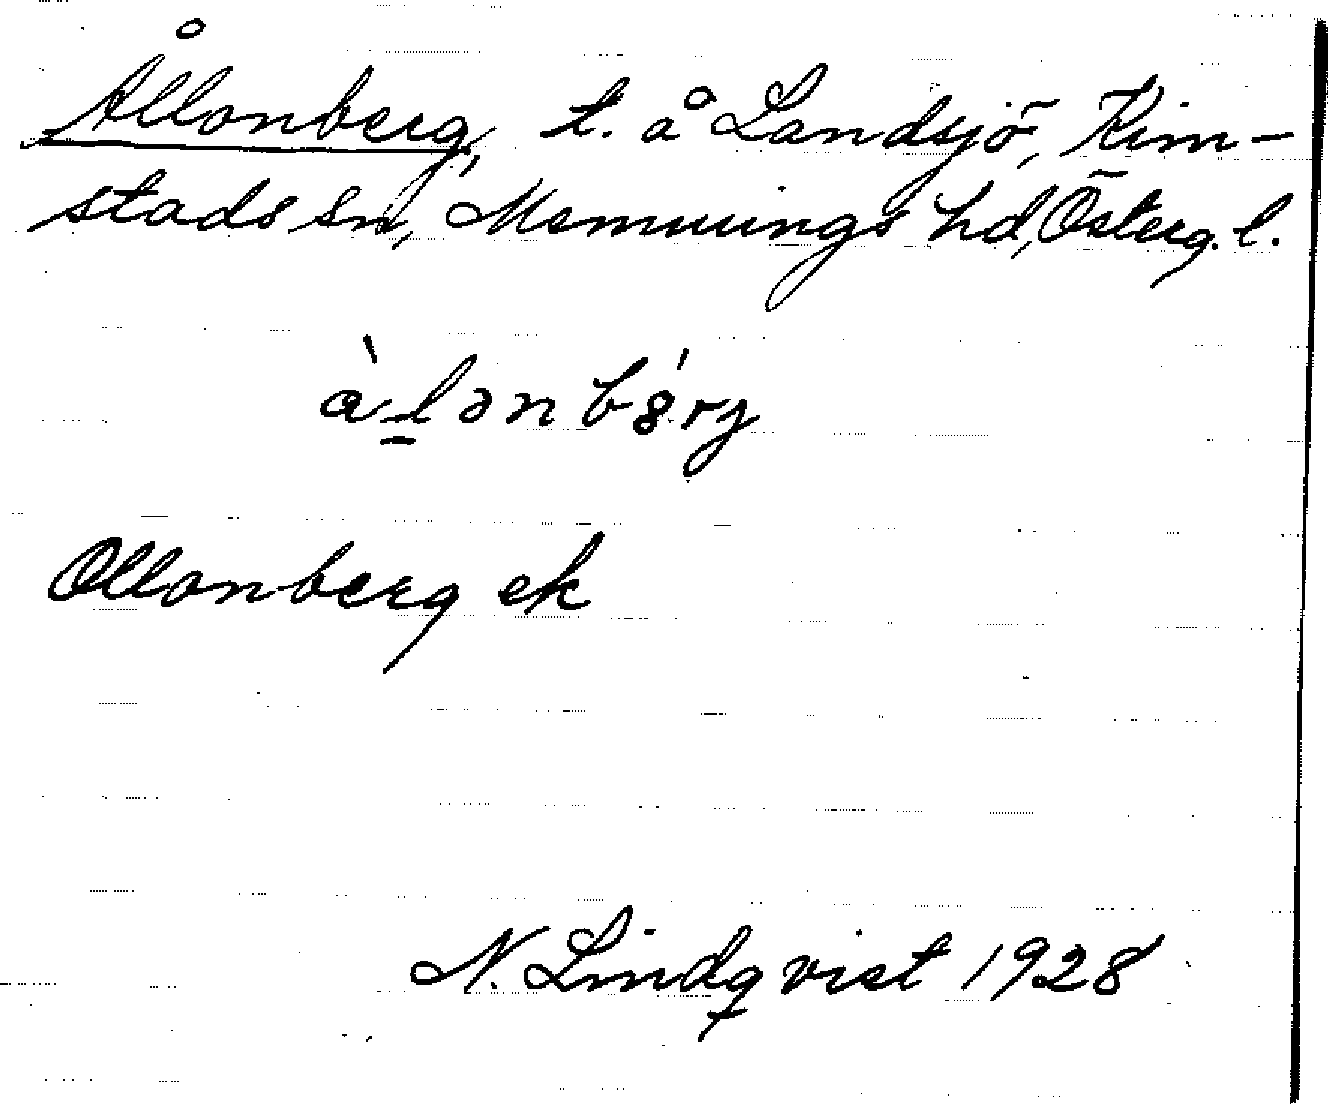 Ållonberg, t. å Landsjö, Kim-
stads sn, Memmings hd, Österg. l.
à̀lənbárj
Ollonberg ek
N. Lindqvist 1928